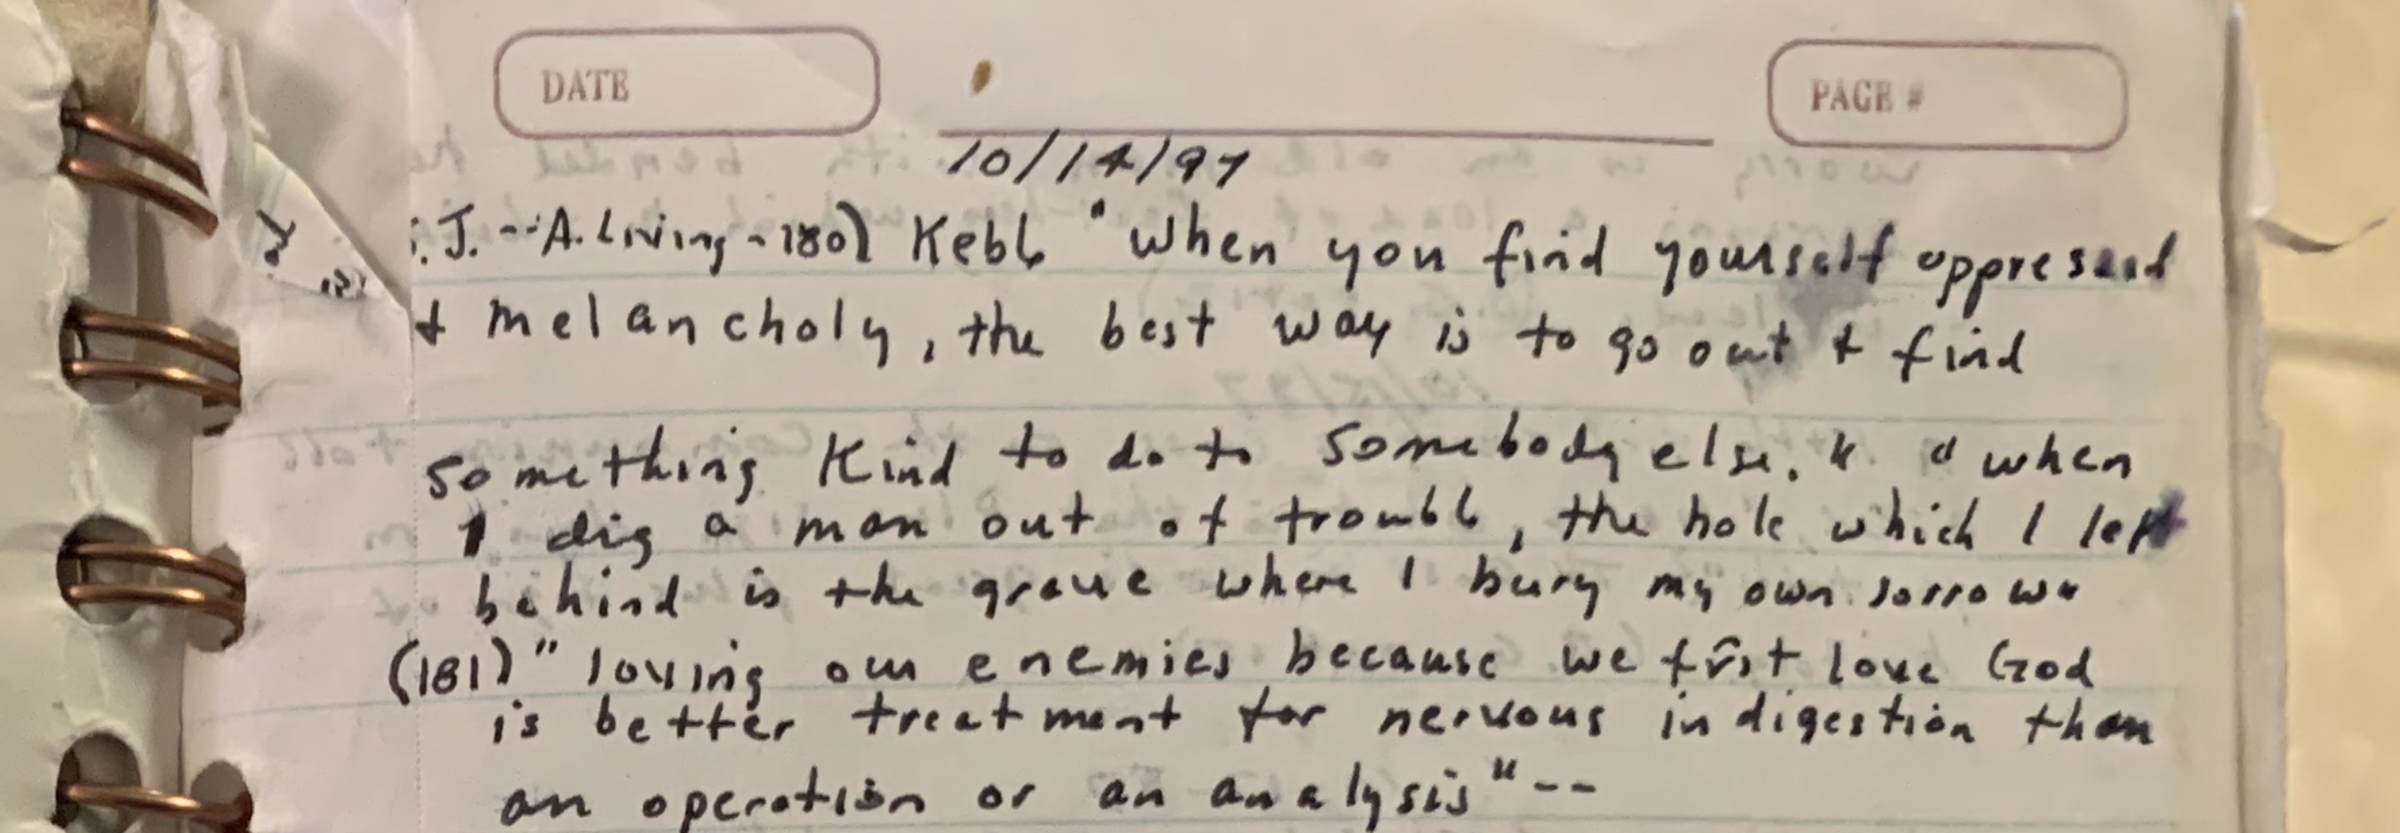 DATE
PAGE #
10/14/97
: J. -- A. Living - 180) Keble "when you find yourself oppressed
+ melancholy, the best way is to go out + find
something Kind to do to somebody else." "when
I dig a man out of trouble, the hole which I left
behind is the grave where I bury my own sorrow"
(181) "loving our enemies because we first love God
is better treatment for nervous indigestion than
an operation or an analysis" --